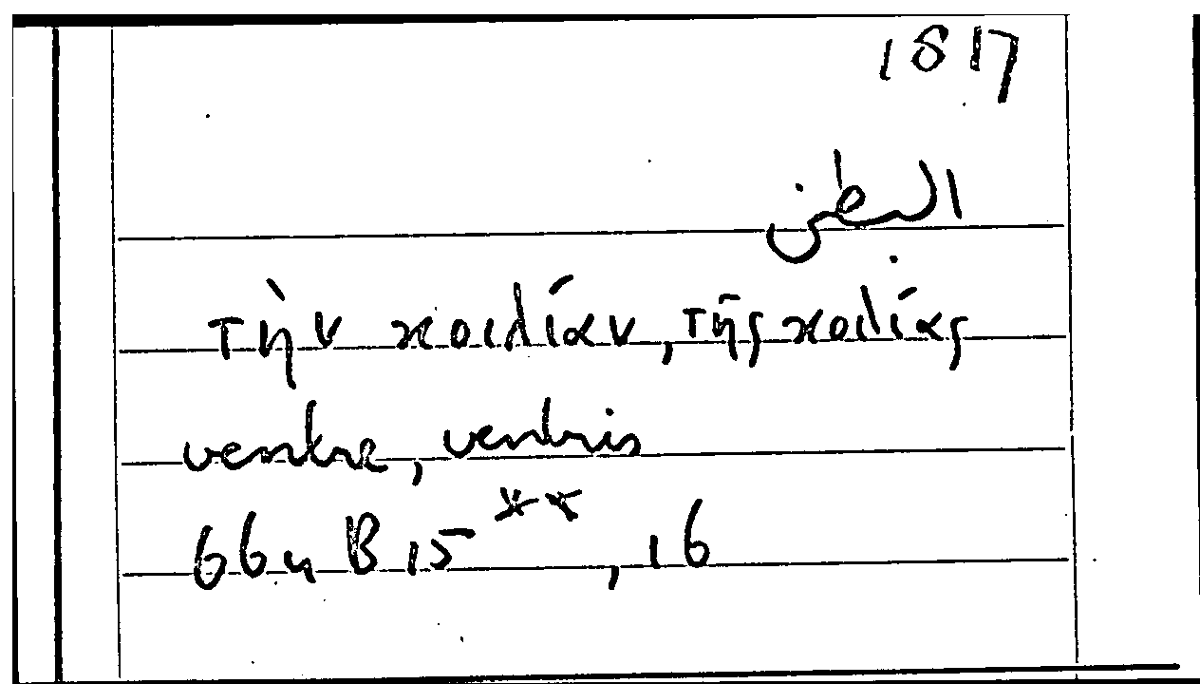 1817
البطن
τὴν κοιλίαν, τῆς κοιλίας
ventre, ventris
664 B 15**, 16